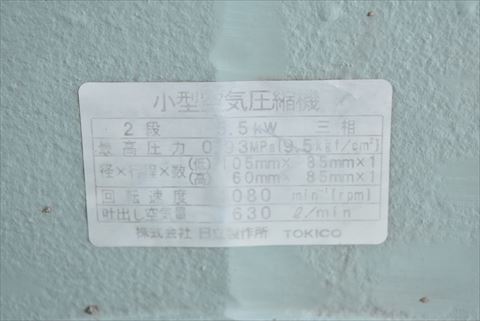 小型空気圧縮機
2段 5.5kW 三相
最高圧力 0.93MPa(9.5kgf/cm²)
径×行程×数 (低) 105mm× 85mm×1
(高) 60mm× 85mm×1
回転速度 1080 min⁻¹(rpm)
吐出し空気量 630 ℓ/min
株式会社 日立製作所 TOKICO